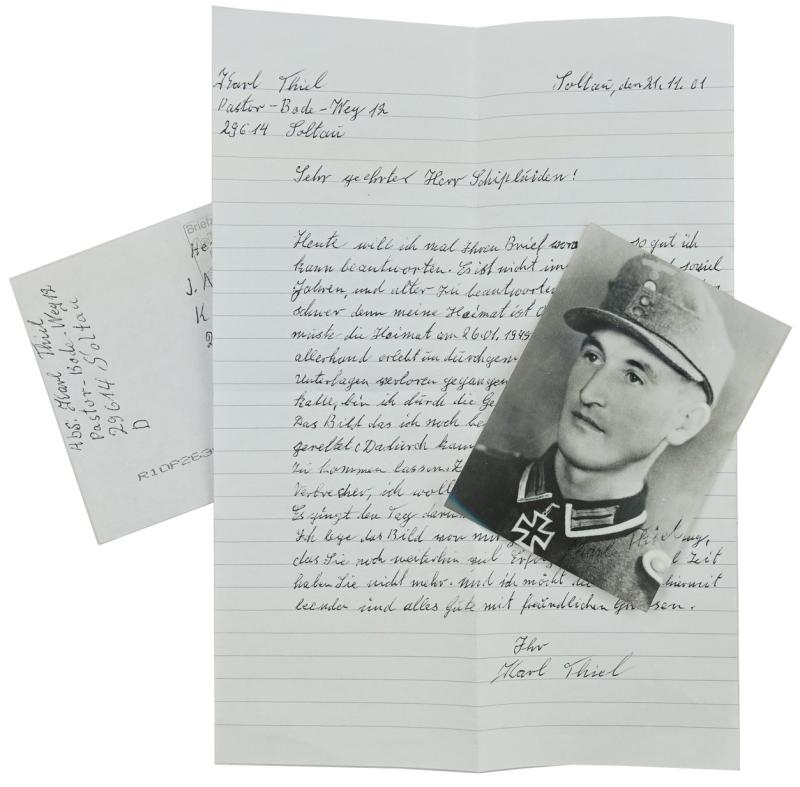 Karl Thiel
Pastor-Bode-Weg 12
29614 Soltau
Soltau, den 21.11.01
Sehr geehrter Herr Schipluiden!
Heute will ich mal Ihren Brief so gut ich
kann beantworten. Es ist nicht soviel
Jahren, und alter zu beantworten
schwer denn meine Heimat ist
muste die Heimat am 26.01.1945
allerhand erlebt un durchgem
Unterlagen verloren gegangen
hatte, bin ich durch die Ge
Das Bild das ich noch be
gerettet. Dadurch kann
zu kommen lassen.
Verbrecher, ich woll
Es gingt den Tag
Ich lege das Bild nun mit
das Sie noch weiterhin viel Erfolg Zeit
haben Sie nicht mehr. und ich möcht hiermit
beenden und alles Gute mit freundlichen Grüssen.
Ihr
Karl Thiel
Karl Thiel
Abs. Karl Thiel
Pastor-Bode-Weg 12
29614 Soltau
D
Briefz
He
J. A
K
2
R1DP263